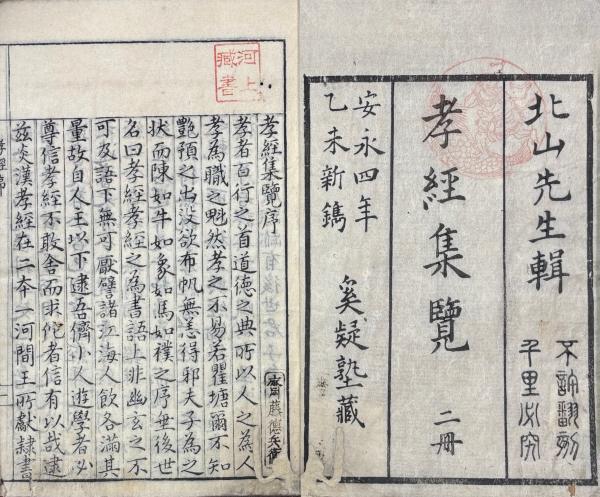 北山先生輯
不許翻刻
千里必究
孝經集覽 二冊
安永四年
乙未新鐫
奚疑塾藏
河上
藏書
孝經集覽序
孝者百行之首道德之典所以人之為人
孝為職之魁然孝之不易若瞿塘爾不知
艷預之出沒欲布帆無恙得邪夫子為之
狀而陳如牛如象如馬如襆之序垂後世
名曰孝經孝經之為書語上非幽玄之不
可及語下無可厭譬諸江海人飲各滿其
量故自人王以下逮吾儕小人遊學者必
尊信孝經不敢舍而求佗者信有以哉逮
茲炎漢孝經在二本一河間王所獻隸書